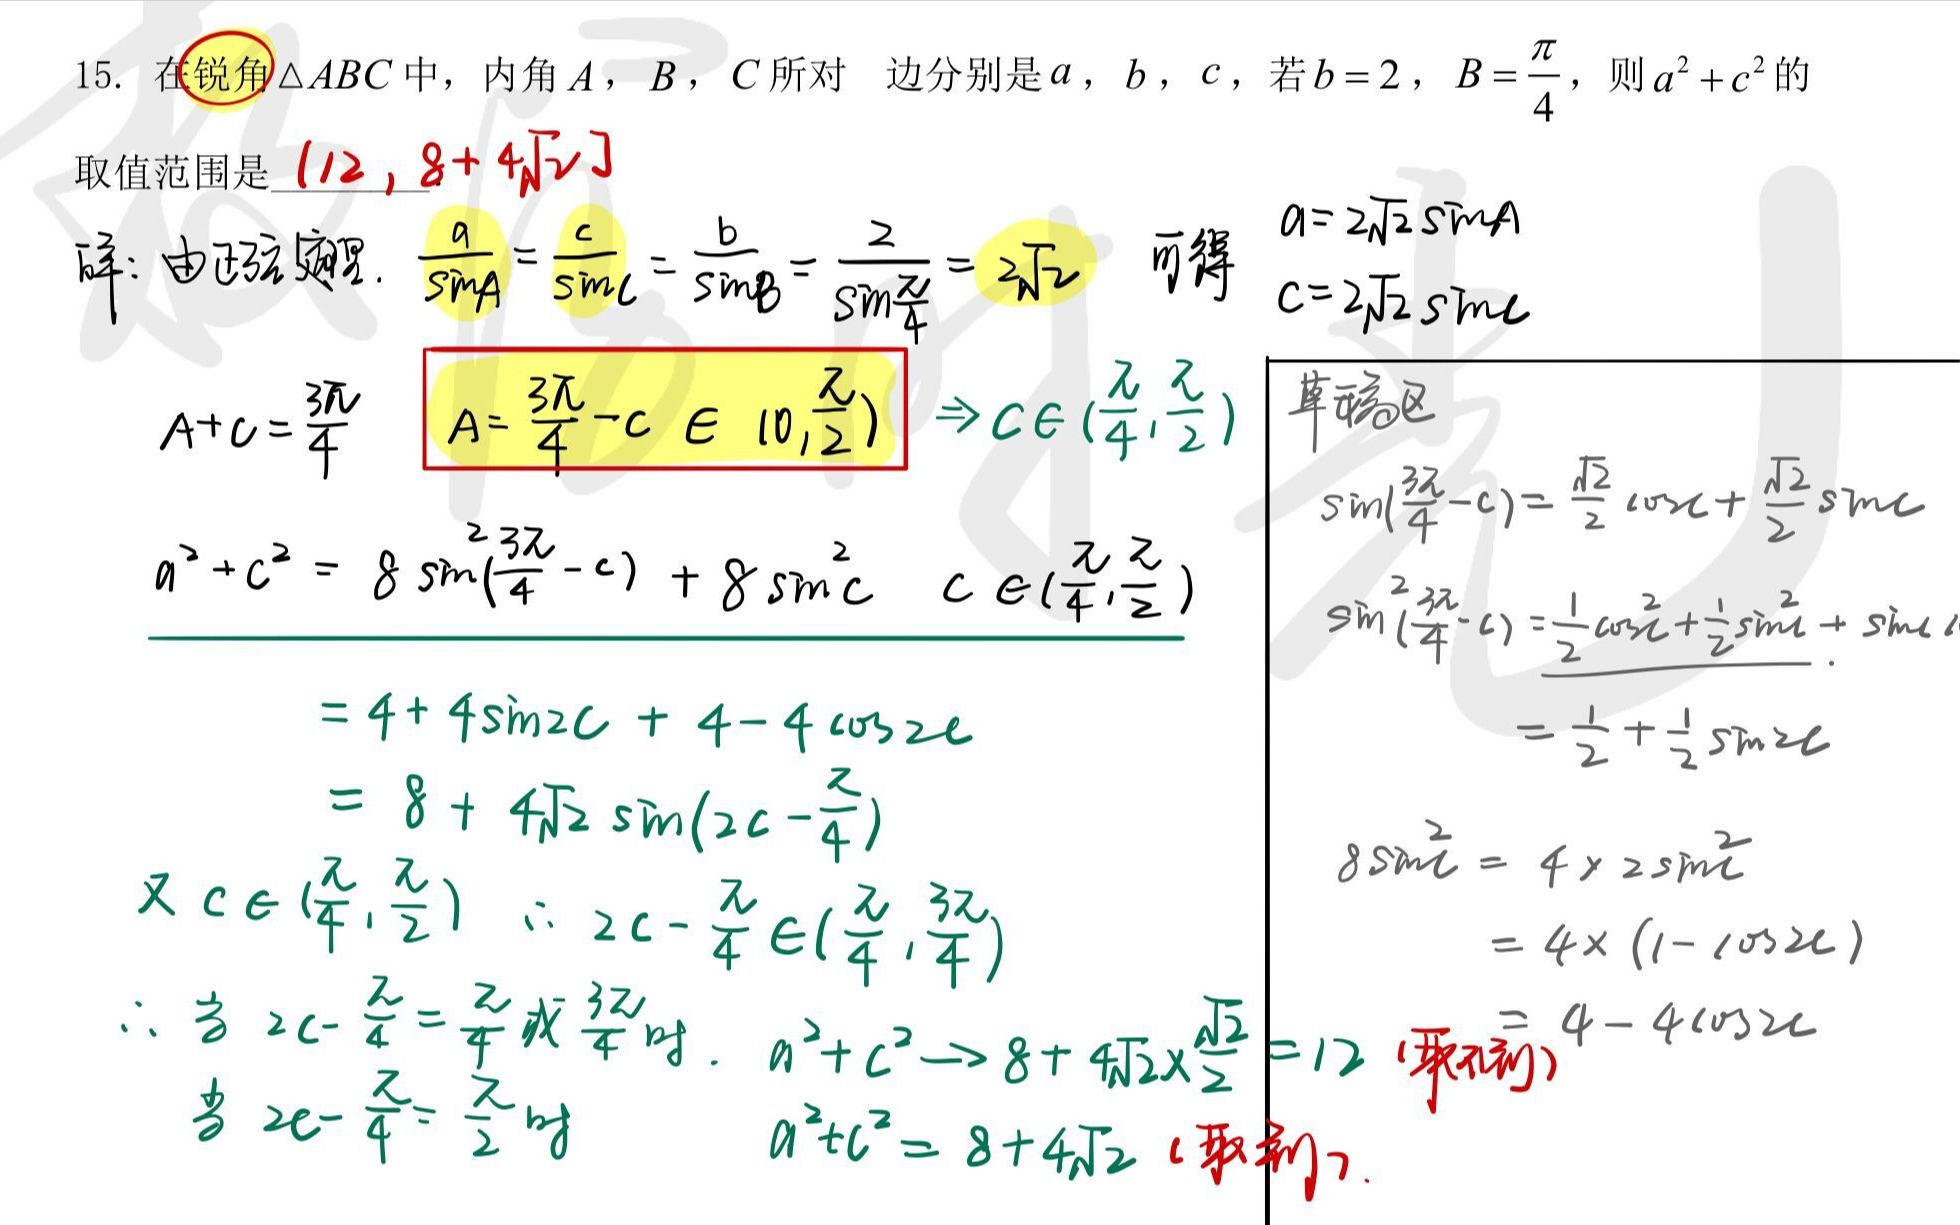 15. 在锐角△ABC中，内角A，B，C所对 边分别是a，b，c，若b=2，B=π/4，则a²+c²的
取值范围是 (12, 8+4√2]
解：由正弦定理. a/sinA = c/sinC = b/sinB = 2/sin(π/4) = 2√2 可得 a=2√2 sinA
c=2√2 sinC
A+C=3π/4 A=3π/4-C ∈ (0,π/2) ⇒ C∈(π/4,π/2)
a²+c² = 8sin²(3π/4-C) + 8sin²C C∈(π/4,π/2)
=4+4sin2C + 4-4cos2C
= 8 + 4√2 sin(2C-π/4)
又 C∈(π/4,π/2) ∴ 2C-π/4∈(π/4,3π/4)
∴ 当 2C-π/4=π/4 或 3π/4 时. a²+c²→8+4√2×√2/2=12 (取不到)
当 2C-π/4=π/2 时 a²+c²=8+4√2 (取到).
草稿区
sin(3π/4-C)=√2/2 cosC+√2/2 sinC
sin²(3π/4-C)=1/2 cos²C+1/2 sin²C + sinC
=1/2+1/2 sin2C
8sin²C = 4×2sin²C
= 4×(1-cos2C)
= 4-4cos2C